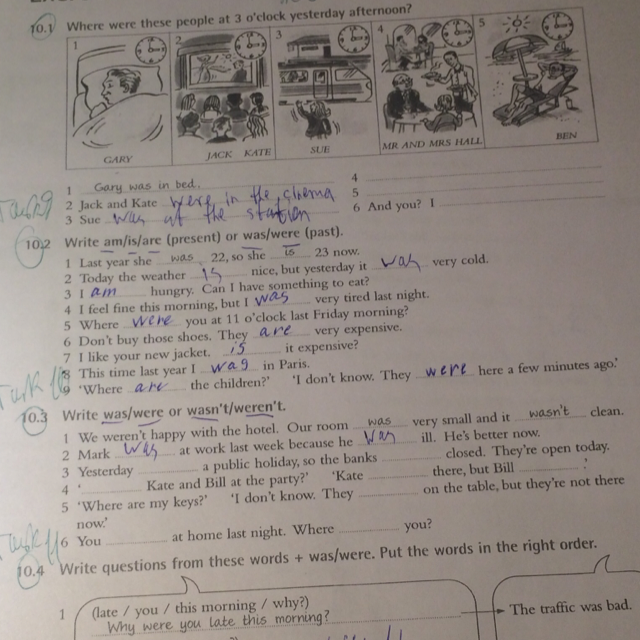 10.1 Where were these people at 3 o'clock yesterday afternoon?
1 2 3 4 5
GARY JACK KATE SUE MR AND MRS HALL BEN
1 Gary was in bed.
2 Jack and Kate were in the cinema
3 Sue was at the station
4
5
6 And you? I
10.2 Write am/is/are (present) or was/were (past).
1 Last year she was 22, so she is 23 now.
2 Today the weather is nice, but yesterday it was very cold.
3 I am hungry. Can I have something to eat?
4 I feel fine this morning, but I was very tired last night.
5 Where were you at 11 o'clock last Friday morning?
6 Don't buy those shoes. They are very expensive.
7 I like your new jacket. is it expensive?
8 This time last year I was in Paris.
9 'Where are the children?' 'I don't know. They were here a few minutes ago.'
10.3 Write was/were or wasn't/weren't.
1 We weren't happy with the hotel. Our room was very small and it wasn't clean.
2 Mark was at work last week because he was ill. He's better now.
3 Yesterday a public holiday, so the banks closed. They're open today.
4 ' Kate and Bill at the party?' 'Kate there, but Bill .'
5 'Where are my keys?' 'I don't know. They on the table, but they're not there
now.'
6 You at home last night. Where you?
10.4 Write questions from these words + was/were. Put the words in the right order.
1 (late / you / this morning / why?)
Why were you late this morning?
The traffic was bad.